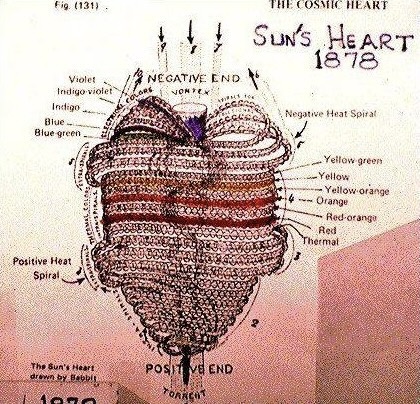 Fig. (131) .
THE COSMIC HEART
SUN'S HEART
1878
9
8
7
NEGATIVE END
VORTEX
Violet
Indigo-violet
Indigo
Blue
Blue-green
Negative Heat Spiral
Yellow-green
Yellow
Yellow-orange
4 Orange
Red-orange
Red
Thermal
Positive Heat
Spiral
3
2
POSITIVE END
TORRENT
The Sun's Heart
drawn by Babbit
1878